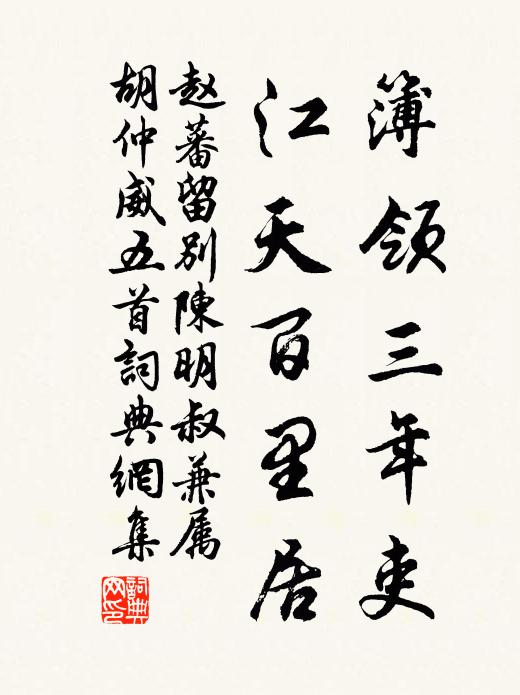 簿領三年吏
江天百里居
赵蕃留別陳明叔兼属
胡仲威五首詞典網集
詞典
网印